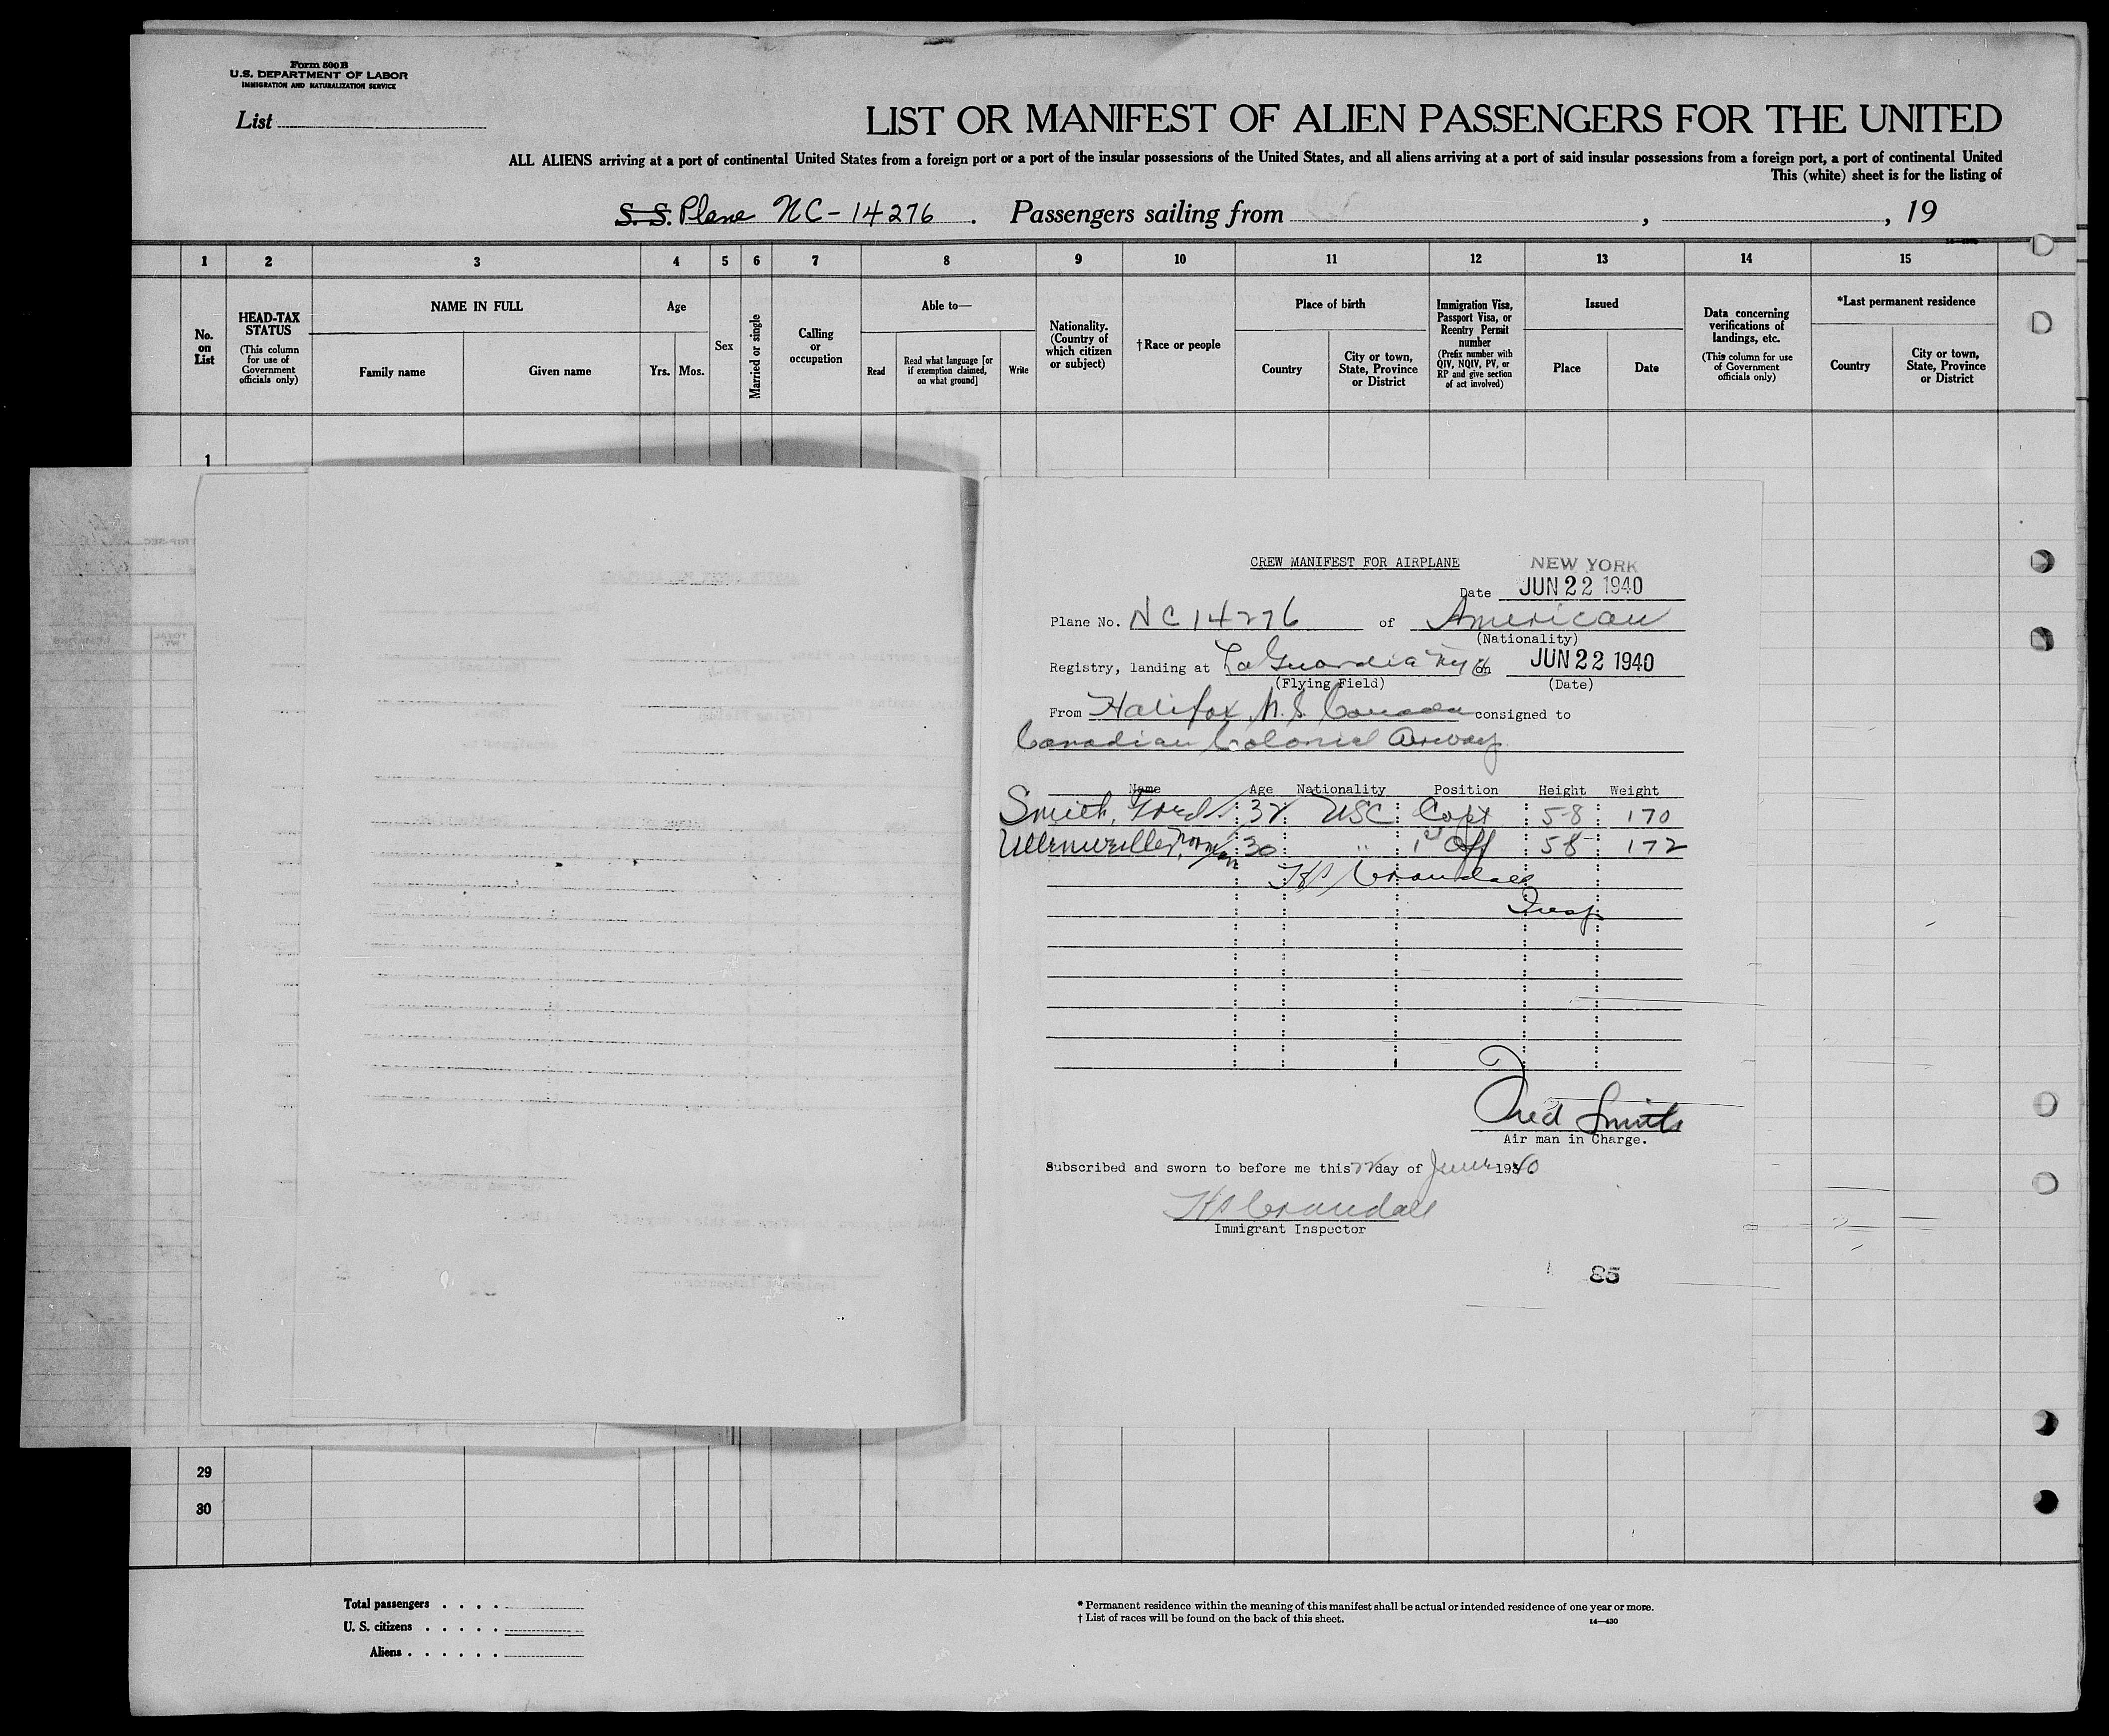 Form 500 B
U.S. DEPARTMENT OF LABOR
IMMIGRATION AND NATURALIZATION SERVICE
List
LIST OR MANIFEST OF ALIEN PASSENGERS FOR THE UNITED
ALL ALIENS arriving at a port of continental United States from a foreign port or a port of the insular possessions of the United States, and all aliens arriving at a port of said insular possessions from a foreign port, a port of continental United
This (white) sheet is for the listing of
S. S. Plane NC-14276. Passengers sailing from , , 19
1 2 3 4 5 6 7 8 9 10 11 12 13 14 15
No. on List
HEAD-TAX STATUS
(This column for use of Government officials only)
NAME IN FULL
Family name
Given name
Age
Yrs. Mos.
Sex
Married or single
Calling or occupation
Able to—
Read
Read what language [or if exemption claimed, on what ground]
Write
Nationality. (Country of which citizen or subject)
† Race or people
Place of birth
Country
City or town, State, Province or District
Immigration Visa, Passport Visa, or Reentry Permit number
(Prefix number with QIV, NQIV, PV, or RP and give section of act involved)
Issued
Place
Date
Data concerning verifications of landings, etc.
(This column for use of Government officials only)
*Last permanent residence
Country
City or town, State, Province or District
1
CREW MANIFEST FOR AIRPLANE
NEW YORK
Date JUN 22 1940
Plane No. NC 14276 of American
(Nationality)
Registry, landing at La Guardia NY on JUN 22 1940
(Flying Field) (Date)
From Halifax N.S. Canada consigned to
Canadian Colonial Airway
Name Age Nationality Position Height Weight
Smith, 32 USC Capt 5-8 170
Norman 30 " 1st Off 5 8 172
HS Crandall
Insp
Fred Smith
Air man in Charge.
Subscribed and sworn to before me this 22 day of June 1940
HS Crandall
Immigrant Inspector
85
29
30
Total passengers
U. S. citizens
Aliens
* Permanent residence within the meaning of this manifest shall be actual or intended residence of one year or more.
† List of races will be found on the back of this sheet.
14—430